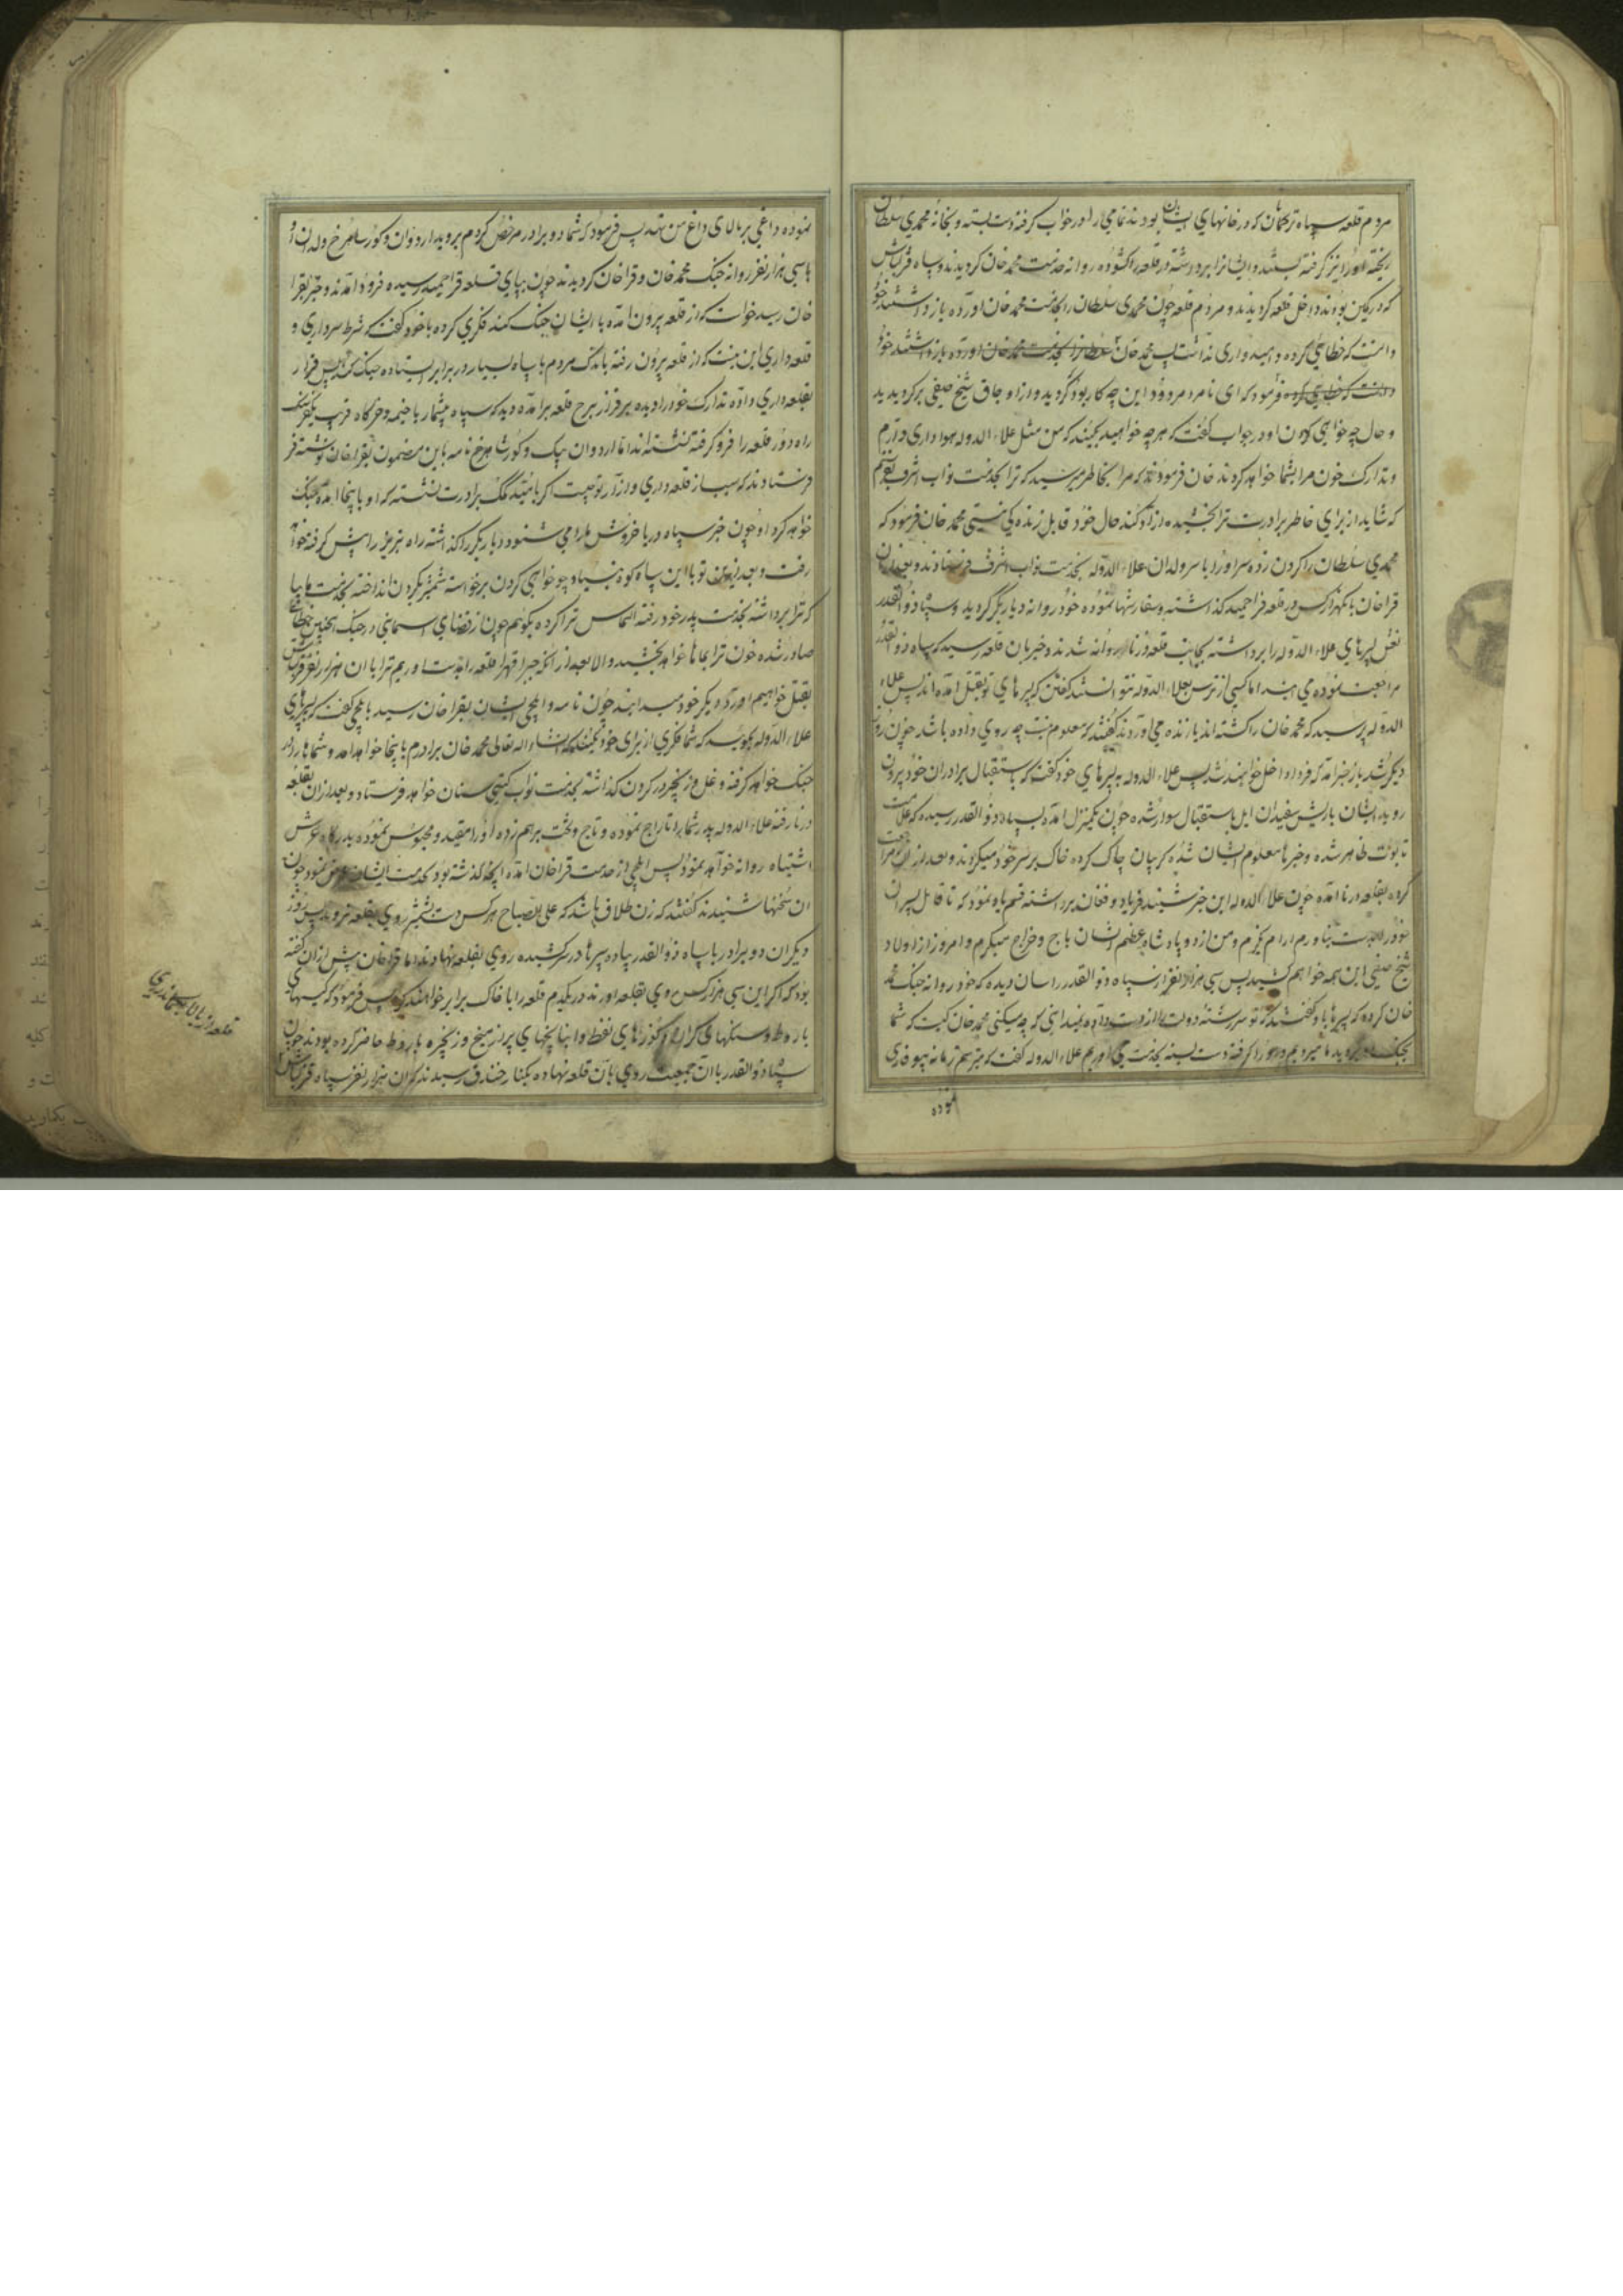 مردم قلعه سپاه ترکمان که در خانهای ایشان بودند تمامی را در خواب گرفته دست بسته و بخانه محمدی سلطان
ریخته اورا نیز گرفته بستند و ایشانرا برداشته در قلعه را کشوده روانه خدمت محمد خان کردیدند و سپاه قزلباش
که در کمین بودند داخل قلعه کردیدند و مردم قلعه چون محمدی سلطان را بخدمت محمد خان اورده باز داشتند خود
دانست که خطائی کرده و امیدواری نداشت پس محمد خان
فرمود که ای نامرد مردود این چه کار بود کردید و از اوجاق شیخ صفی برکردیدید
و حال چه خواهی کردن او در جواب گفت که هرچه خواهید بکنید که من مثل علاء الدوله هواداری دارم
و تدارک خون مرا بشما خواهد کرد خان فرمودند که مرا بخاطر میرسید که ترا بخدمت نواب اشرف بفرستم
که شاید از برای خاطر برادرت ترا بخشیده ازاد کند حال خود قابل زنده کی نیستی محمد خان فرمود که
محمدی سلطان را کردن زده سر اورا با سر ولدان علاء الدوله بخدمت نواب اشرف فرستادند و بعد از ان
قراخان با یکهزار کس در قلعه قراحمید گذاشته و سفارشها نموده خود روانه دیاربکر گردید و سپاه ذوالقدر
نعش پسرهای علاء الدوله را برداشته بجانب قلعه درنا روانه شدند و خبر بان قلعه رسید که سپاه ذوالقدر
مراجعت نموده می ایند اما کسی از ترس بعلاء الدوله نتوانستند گفتن که پسرهای تو بقتل امده اند پس علاء
الدوله پرسید که محمد خان را کشته اند یا زنده می اورند گفتند که معلوم نیست چه روی داده باشد چون روز
دیگر شد باز خبر امد که فردا داخل خواهند شد پس علاء الدوله به پسرهای خود گفت که باستقبال برادران خود بیرون
روید ایشان با ریش سفیدان ایل باستقبال سوار شده چون یکمنزل امده بسپاه ذوالقدر رسیده که علامت
تابوت ظاهر شده و خبرها معلوم ایشان شده کریبان چاک کرده خاک بر سر خود میکردند و بعد از ان مراجعت
کرده بقلعه درنا امده چون علاء الدوله این خبر شنید فریاد و فغان برداشته قسم یاد نمود که تا قاتل پسران
خود را بدست نیاورم ارام نکیرم و من از دو پادشاه عظیم الشان باج و خراج میگیرم و امروز از اولاد
شیخ صفی این همه خواهم کشید پس سی هزار نفر از سپاه ذوالقدر را سان دیده که خود روانه جنگ محمد
خان کرده که پسرها باو گفتند که تو سررشته دولت را از دست داده نمیدانی که چه میکنی محمد خان کیست که شما
بجنک او روید ما میرویم و او را گرفته دست بسته بخدمت می اوریم علاء الدوله گفت که میترسم شما نیز بیوفائی
نموده
نموده داغی بر بالای داغ من نهید پس فرمود که شما دو برادر مرخص کردم بروید اردوان و کور شاهرخ ولدان او
با سی هزار نفر روانه جنک محمد خان و قراخان کردیدند چون بپای قلعه قراحمید رسیده فرود امدند و خبر بقرا
خان رسید خواست که از قلعه بیرون امده با ایشان جنک کند فکری کرده با خود گفت که شرط سرداری و
قلعه داری این نیست که از قلعه بیرون رفته باندک مردم با سپاه بسیار در برابر ایستاده جنک کند پس قرار
بقلعه داری داده تدارک خود را دیده بر فراز برج قلعه برامده دید که سپاه بیشمار با خیمه و خرکاه قریب یکفرسنک
راه دور قلعه را فرو گرفته نشسته اند اما اردوان بیک و کور شاهرخ نامه باین مضمون بقراخان نوشته
فرستادند که سبب از قلعه داری و ازار تو چیست اگر بامید کمک برادرت نشسته که او باینجا امده جنک
خواهد کرد او چون خبر سپاه دریا خروش ما را می شنود دیاربکر را گذاشته راه تبریز را پیش گرفته خواهد
رفت و بعد از این تو با این سپاه کوه بنیاد چه خواهی کردن برخواسته شمشیر بکردن انداخته بخدمت ما بیا
که ترا برداشته بخدمت پدر خود رفته التماس ترا کرده بگوئیم چون از قضای اسمانی در جنک بچنین خطائی
صادر شده خون ترا بما ها خواهد بخشید والا بعد از انکه جبرا قهرا قلعه را بدست اوریم ترا با ان هزار نفر قزلباش
بقتل خواهیم اورد دیگر خود میدانید چون نامه و ایلچی ایشان بقراخان رسید بایلچی گفت که پسرهای
علاء الدوله بگوئید که شما فکری از برای خود بکنید که انشاء اله تعالی محمد خان برادرم باینجا خواهد امد و شما ها را در
جنک خواهد گرفت و غل و زنجیر در کردن گذاشته بخدمت نواب گیتی ستان خواهد فرستاد و بعد از ان بقلعه
درنا رفته علاء الدوله پدر شما را تاراج نموده و تاج و تخت برهم زده اورا مقید و محبوس نموده بدرگاه عرش
اشتباه روانه خواهد نمود پس ایلچی از خدمت قراخان امده انچه گذشته بود بخدمت ایشان عرض نمود چون
ان سخنها شنیدند گفتند که زن طلاق باشد که علی الصباح هر کس دست بشمشیر روی بقلعه نرود پس روز
دیگر ان دو برادر با سپاه ذوالقدر پیاده سپرها در سر کشیده روی بقلعه نهادند اما قراخان پیش از ان گفته
بود که اگر این سی هزار کس روی بقلعه اورند در یکدم قلعه را با خاک برابر خواهند کرد پس فرمود که کیسهای
باروط و سنکهای گران و کوزهای نفط و انبانچهای پر از میخ و زنجیره باروط حاضر کرده بودند چون
سپاه ذوالقدر با ان جمعیت روی بان قلعه نهاده بکنار خندق رسیدند که ان هزار نفر سپاه قزلباش